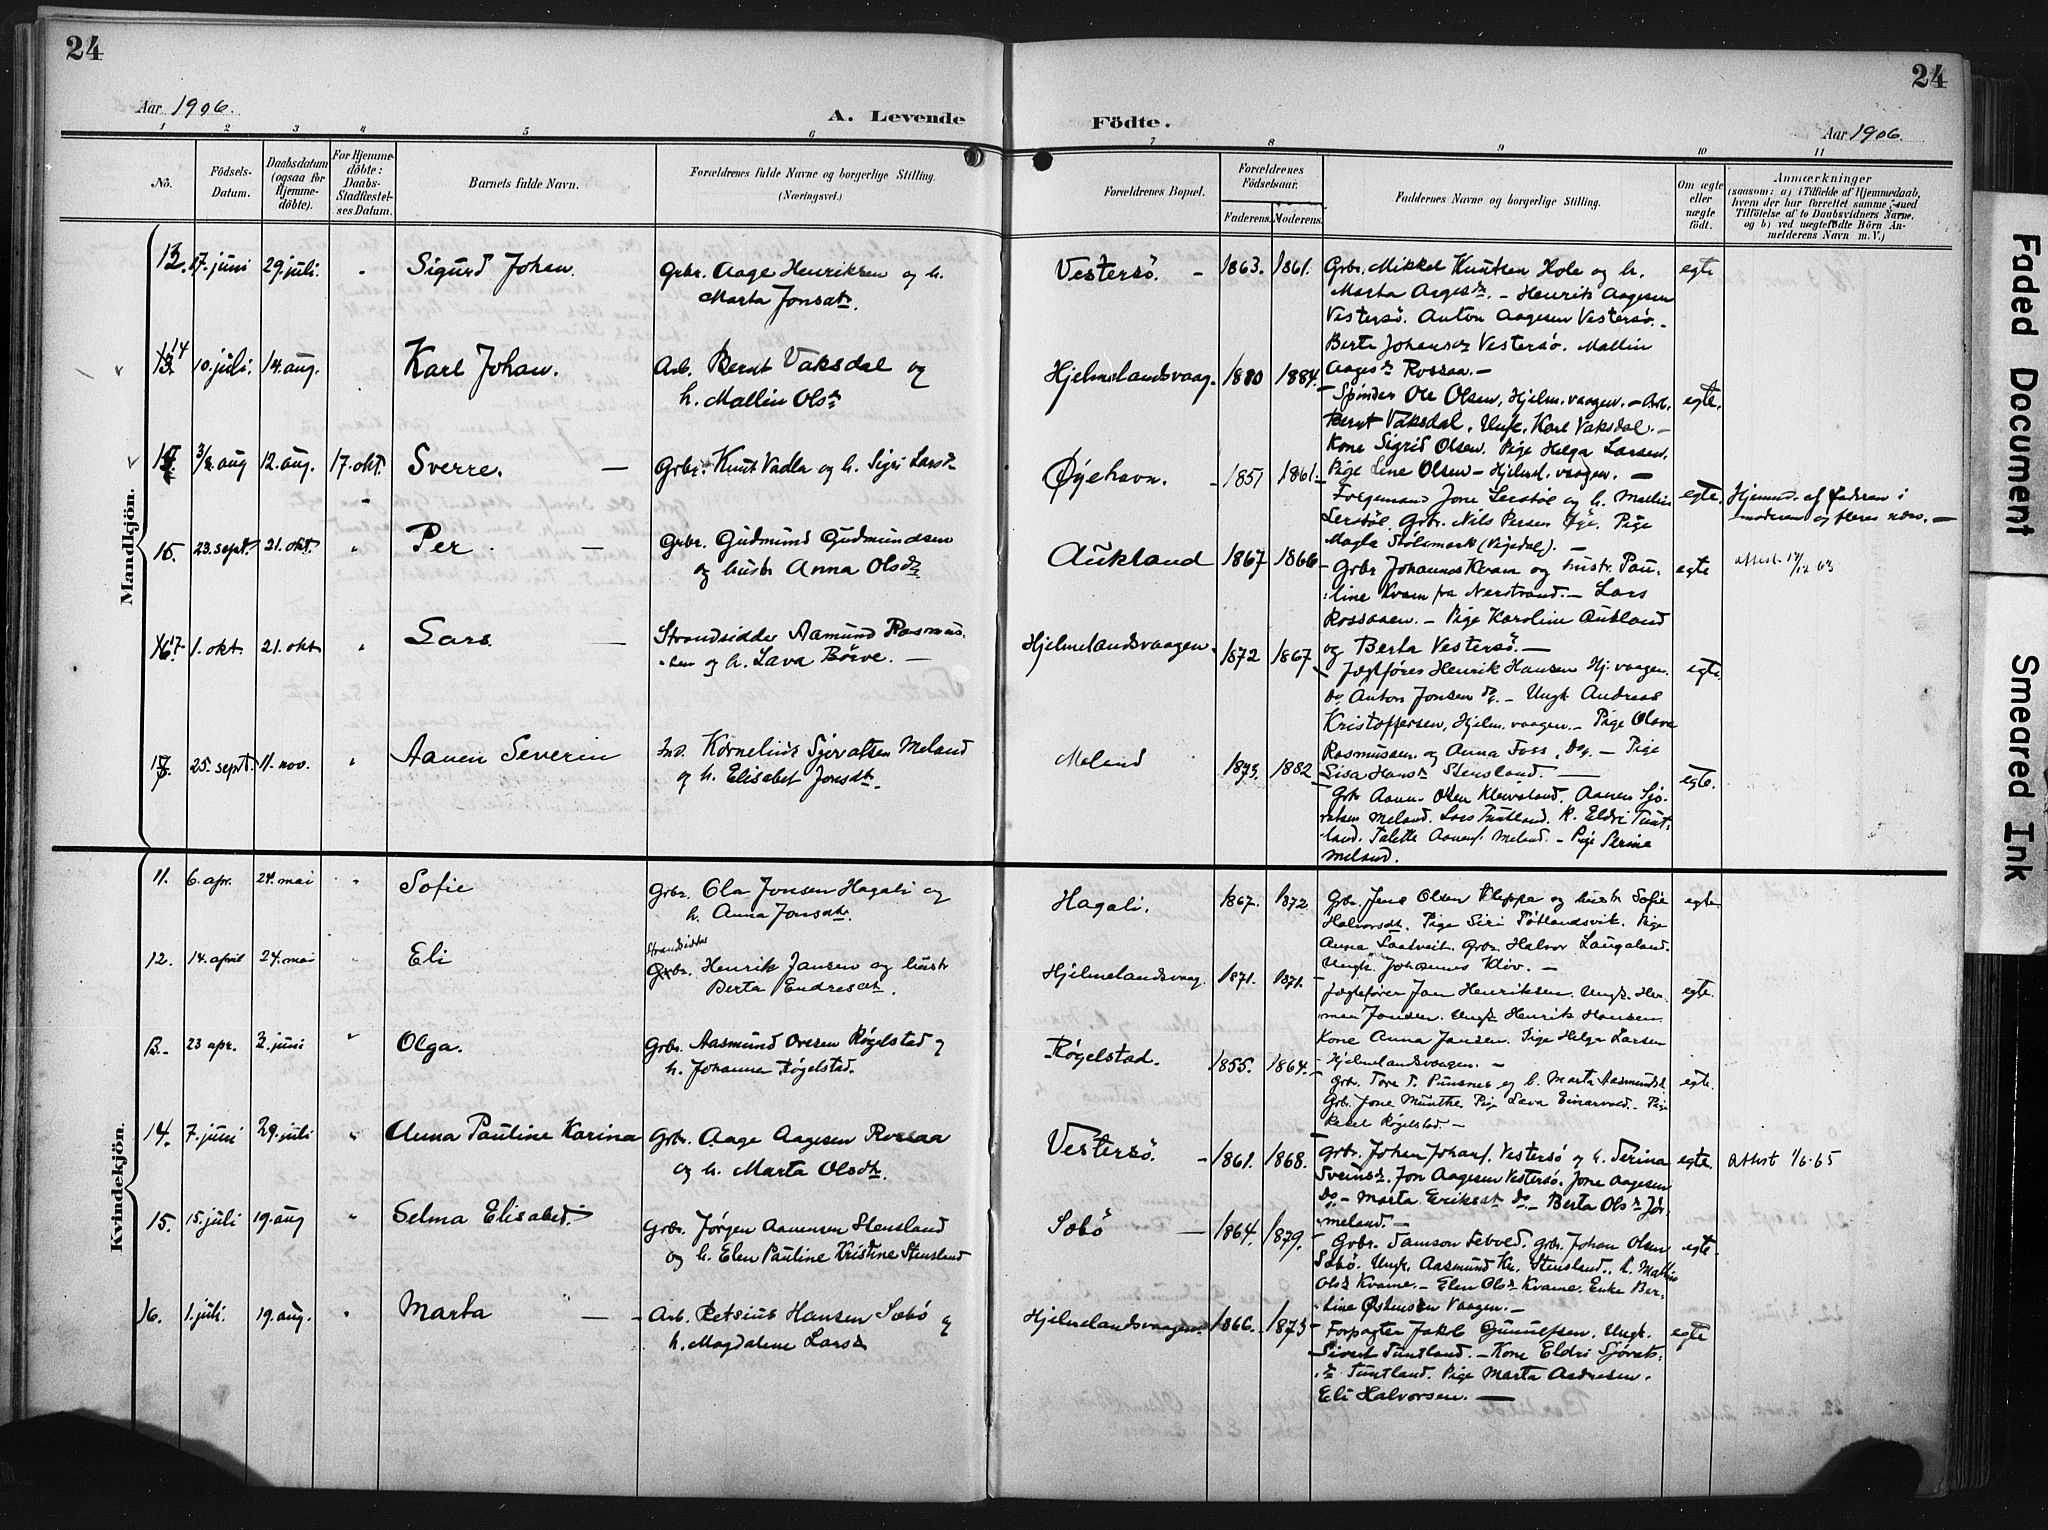 24
24
Aar 1906.
A. Levende
Födte.
Aar 1906.
1 2 3 4 5 6 7 8 9 10 11
No.
Födsels-
Datum.
Daabsdatum
(ogsaa for
Hjemme-
döbte).
For Hjemme-
döbte:
Daabs-
Stadfæstel-
ses Datum.
Barnets fulde Navn.
Forældrenes fulde Navne og borgerlige Stilling.
(Næringsvei.)
Forældrenes Bopæl.
Forældrenes
Födselsaar.
Faderens. Moderens.
Faddernes Navne og borgerlige Stilling.
Om ægte
eller
uægte
födt.
Anmærkninger
(saasom: a) i Tilfælde af Hjemmedaab,
hvem der har forrettet samme, med
Tilföielse af to Daabsvidners Navne,
og b) ved uægtefödte Börn An-
melderens Navn m. V.)
Mandkjön.
13. 17. juni 29. juli. " Sigurd Johan.
Grbr. Aage Henriksen og h.
Marta Jonsdtr.
Vestersö. - 1863. 1861.
Grbr. Mikkel Knutsen Hole og h.
Marta Aagesdtr. - Henrik Aagesen
Vestersö. Anton Aagesen Vestersö. -
Berte Johansdtr Vestersö. Mallin
Aagesdtr Rossaa. -
egte
14 10. juli. 14. aug. Karl Johan.
Arb. Bernt Vaksdal og
h. Mallin Olsdtr
Hjelmelandsvaag. 1880 1884.
Spinder Ole Olsen, Hjelm.vaagen. - Arb.
Bernt Vaksdal. Ungk. Karl Vaksdal. -
Kone Sigrid Olsen. Pige Helga Larsen.
Pige Line Olsen - Hjelml. vaagen. -
egte.
3/8 aug 12. aug. 17. okt. Sverre. -
Grbr. Knut Vadla og h. Sigri Larsdtr
Øyehavn. - 1851 1861.
Forgemand Jone Lerstøl og h. Malin
Lerstöl. Grbr. Nils Persen Øje. Pige
Magla Stölsmark (Vijedal). -
egte. Hjemmd. af faderen i
moderens og fleres nærv. -
23. sept. 21. okt. " Per -
Grbr. Gudmund Gudmundsen
og hustr Anna Olsdtr
Aukland 1867 1866
Grbr Johannes Kvam og hustr. Pau-
line Kvam fra Nerstrand. - Lars
Rossaaen. - Pige Karoline Aukland
og Berta Vestersö. -
egte attest 17/12 63
17 1. okt. 21. okt " Lars -
Strandsidder Aamund Rasmus-
sen og h. Lava Börve. -
Hjelmelandsvaagen. 1872 1867
Jægtføres Henrik Hansen Hj. vaagen.
Do Anton Jonsen do. - Ungk Andreas
Kristoffersen, Hjelm.vaagen. - Pige Olava
Rasmussen og Anna Foss, Do. - Pige
Sisa Hansdtr Stensland. -
egte.
25. sept. 11. nov. " Aanen Severin
Ind. Kornelius Sjovatsen Meland
og h. Elisabet Jonsdtr.
Meland 1873. 1882
Grbr Aanen Olsen Kleivaland. Aanen Sjo-
vatsen Meland. Lars Tuntland. K. Eldri Tunt-
land. Talette Aanens. Meland. - Pige Serine
Meland.
egte.
Kvindekjön.
11. 6. apr. 24. mai " Sofie
Grbr. Ola Jonsen Hagali og
h. Anna Jonsdtr.
Hagali. 1867. 1872
Grbr. Jens Olsen Kleppa og hustr Sofie
Halvorsdtr. Pige Siri Pötlandsvik. Pige
Anna Laatveit. Grbr Halvor Laugaland.
Ungk. Johannes Klöv. -
egte
12. 14. april 24. mai " Eli
Strandsidder
Grbr. Henrik Jansen og hustr
Berta Endresdtr.
Hjelmelandsvaag. 1871. 1871.
Jægtefører Jan Henriksen. Ungk. Her-
man Jansen. Ungk Henrik Hansen.
Kone Anna Jansen. Pige Helga Larsen
Hjelmelandsvaagen. -
egte.
13. 23 apr. 3. juni " Olga.
Grbr. Aasmund Ovesen Røgelstad og
h. Johanna Røgelstad.
Røgelstad. 1855. 1864.
Grbr. Tore T. Pundsnes og h. Marta Aasmundsd.
Grbr. Jone Munthe Pige Lava Einarvold. - Pige
Rakel Røgelstad. -
egte.
14. 7. juni 29. juli " Anna Pauline Karina
Grbr. Aage Aagesen Rossaa
og h. Marta Olsdtr.
Vestersö. - 1861. 1868.
Grbr. Johan Johans. Vestersö og h. Serina
Sveinsdtr. Jon Aagesen Vestersö. Jone Aagesen
Do - Marta Eriksdtr Do - Berta Olsdtr Jør-
meland. -
egte. attest 1/6-65
15. 15. juli 19. aug " Selma Elisabet.
Grbr. Jørgen Aanensen Stensland
og h. Elen Pauline Kristine Stensland
Sæbö - 1864. 1879.
Grbr. Samson Sebvold. Grbr. Johan Olsen
Sæbö. Ungk. Aasmund Kr. Stensland. h. Mathis
Olsdtr Kvame. - Elen Olsdtr Kvame. Enke Ber-
tine Østensen Vaagen. -
egte.
16. 1. juli. 19. aug. " Marta -
Arb. Retsius Hansen Sæbö og
h. Magdalene Larsdtr
Hjelmelandsvaagen. 1866. 1873
Forpagter Jakb Gunulfsen. Ungk.
Sivert Tuntland. - Kone Eldri Sjövats-
dtr Tuntland. Pige Marta Andresen.
Eli Halvorsen. -
egte
Faded Document
Smeared Ink